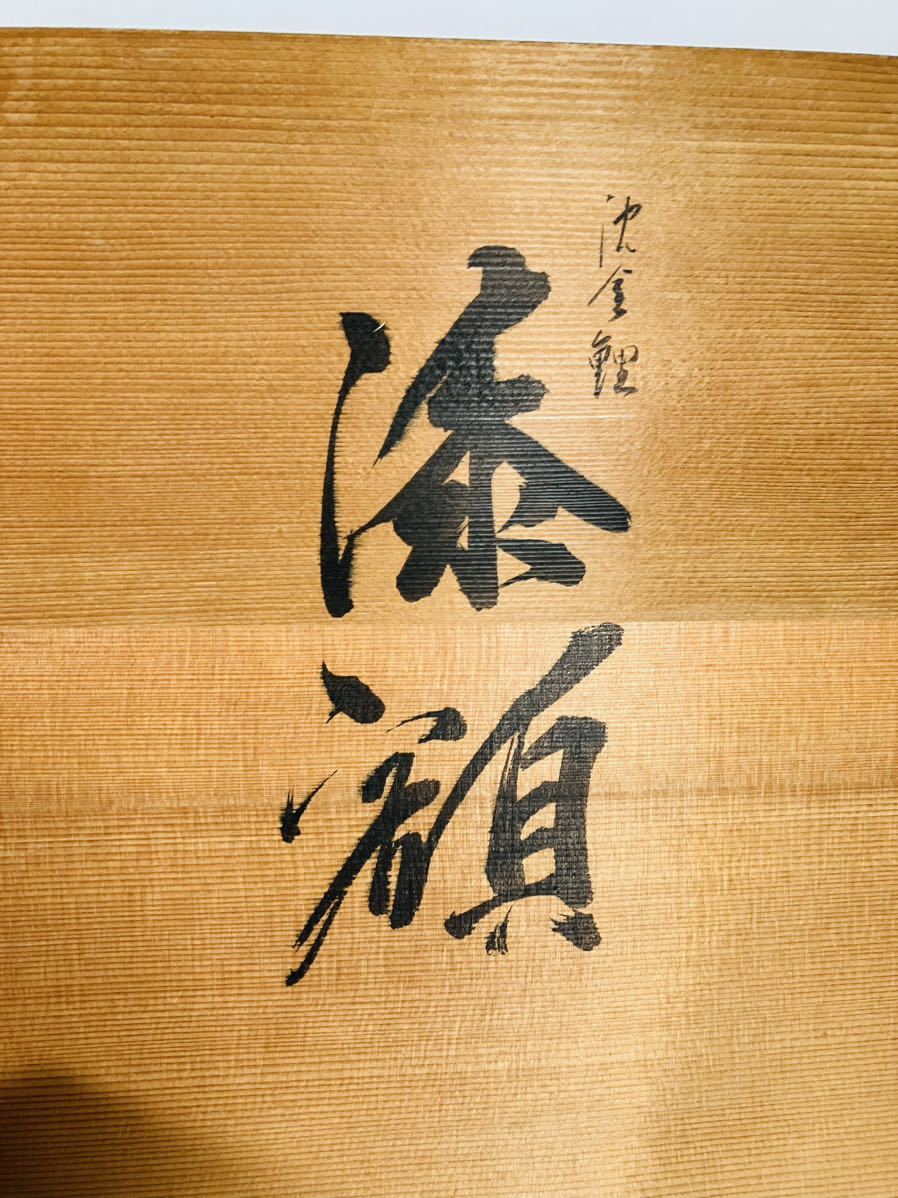 沈金鯉
漆額